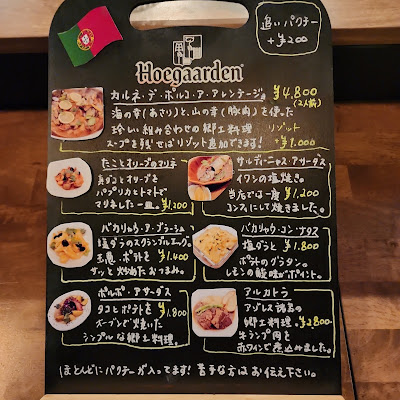 追いパクチー
+¥200
Hoegaarden
カルネ・デ・ポルコ・ア・アレンテージョ ¥4.800
(2人前)
海の幸(あさり)と、山の幸(豚肉)を使った
珍しい組み合わせの郷土料理
リゾット
スープを残せばリゾット追加できます! +¥1.000
たことオリーブのマリネ
真だことオリーブを
パプリカとトマトで
マリネした一皿。¥1.200
サルディーニャス・アサーダス
イワシの塩焼き。
当店では一度 ¥1.200
コンフィにして焼きました。
バカリャウ・ア・ブラーシュ
塩ダラのスクランブルエッグ。
玉ねぎ、ポテトを ¥1.400
サッと炒めたおつまみ。
バカリャウ・コン・ナタス
塩ダラと ¥1.800
ポテトのグラタン。
レモンの酸味がポイント。
ポルポ・アサーダス
タコとポテトを ¥1.800
オーブンで焼いた
シンプルな郷土料理。
アルカトラ
アゾレス諸島の
郷土料理。¥2.800
牛ランプ肉を
赤ワインで煮込みました。
ほとんどにパクチーが入ってます! 苦手な方はお伝え下さい。